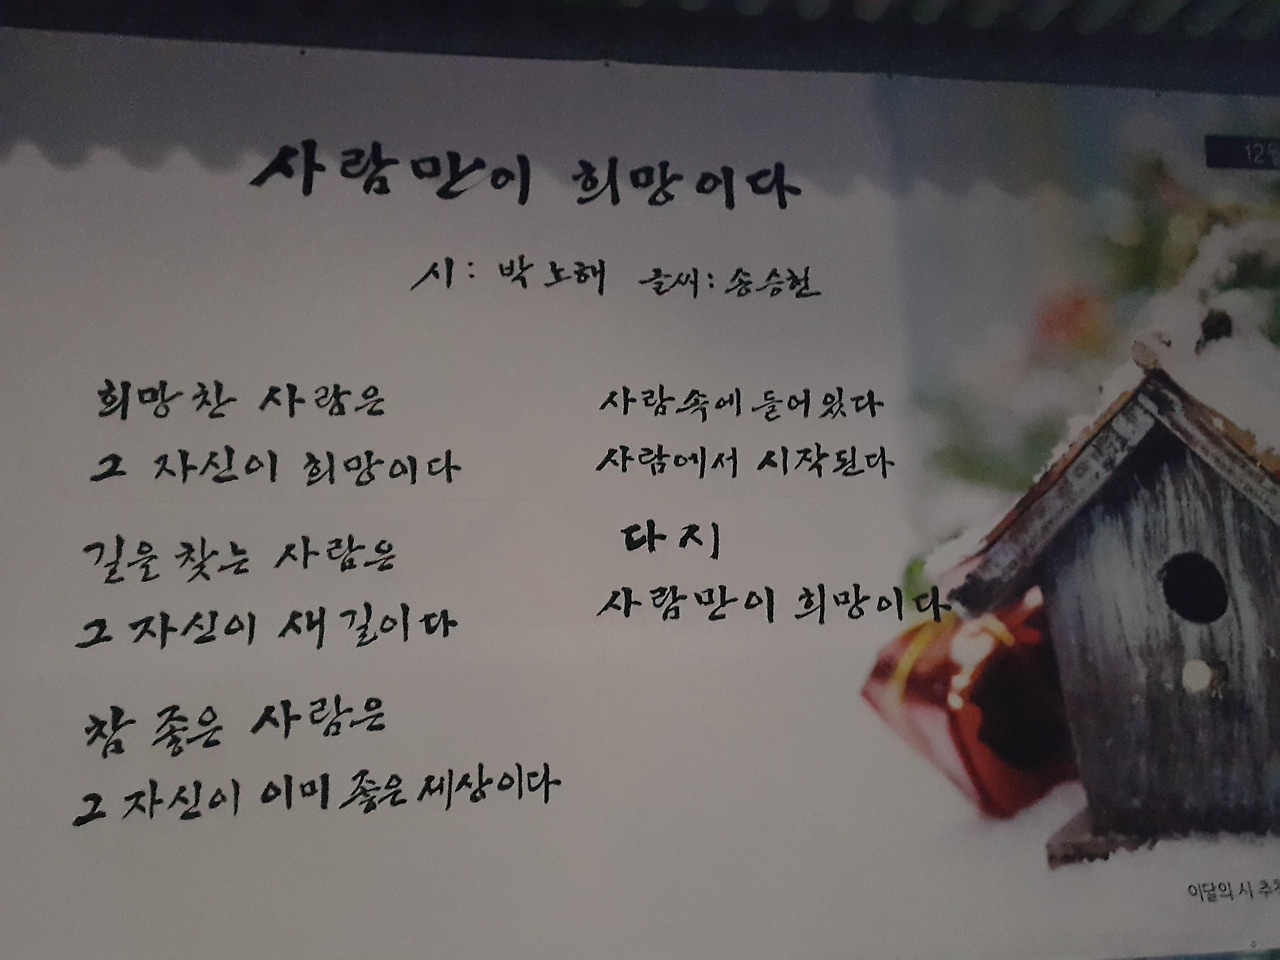 사람만이 희망이다
시: 박노해 글씨: 송승헌
희망찬 사람은
그 자신이 희망이다
길을 찾는 사람은
그 자신이 새 길이다
참 좋은 사람은
그 자신이 이미 좋은 세상이다
사람 속에 들어 있다
사람에서 시작된다
다시
사람만이 희망이다
12월
이달의 시